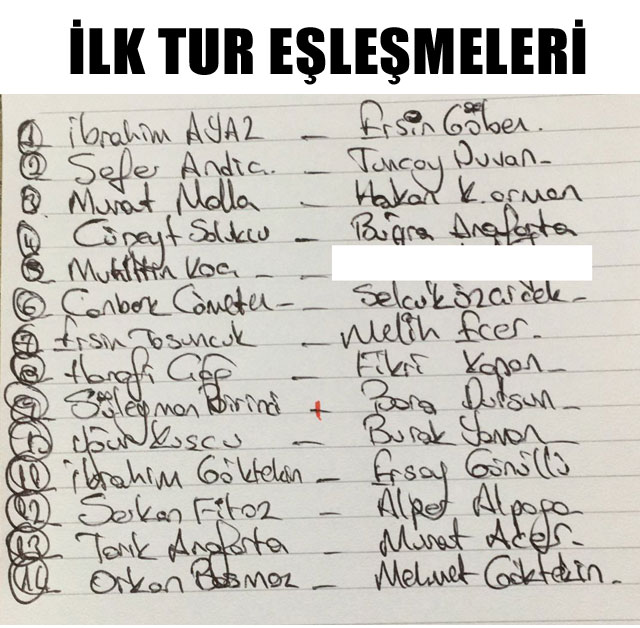 İLK TUR EŞLEŞMELERİ
1 İbrahim AYAZ - Ersin Göber.
2 Sefer Andıç. - Tuncay Duvan-
3. Murat Molla - Hakan K.orman
4 Cüneyt Salukcu - Buğra Anaforta
5 Muhittin Koc -
6 Canberk - Selçuk Özçiçek-
7 Ersin Tosuncuk - Melih Ecer.
8 Hanefi - Fikri Kapan-
9 Süleyman Birinci + Bora Dursun-
Uğur Kuscu - Burak Yaman
İbrahim Göktekin - Ersay Gönüllü
12 Serkan Fitoz - Alper Alpapa
13 Tarık Anaforta - Murat Ateş-
14 Orkan - Mehmet Göktekin-